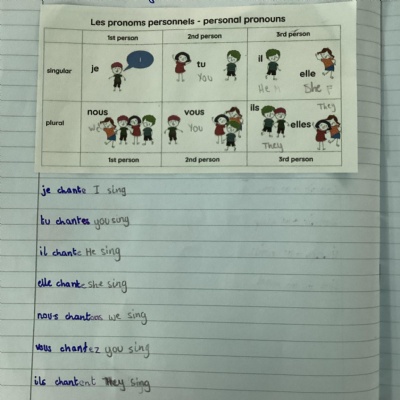 Les pronoms personnels - personal pronouns
1st person 2nd person 3rd person
singular je tu il elle
You He She
plural nous vous ils elles
We You They They
1st person 2nd person 3rd person
je chante I sing
tu chantes you sing
il chante He sing
elle chante she sing
nous chantons we sing
vous chantez you sing
ils chantent They sing